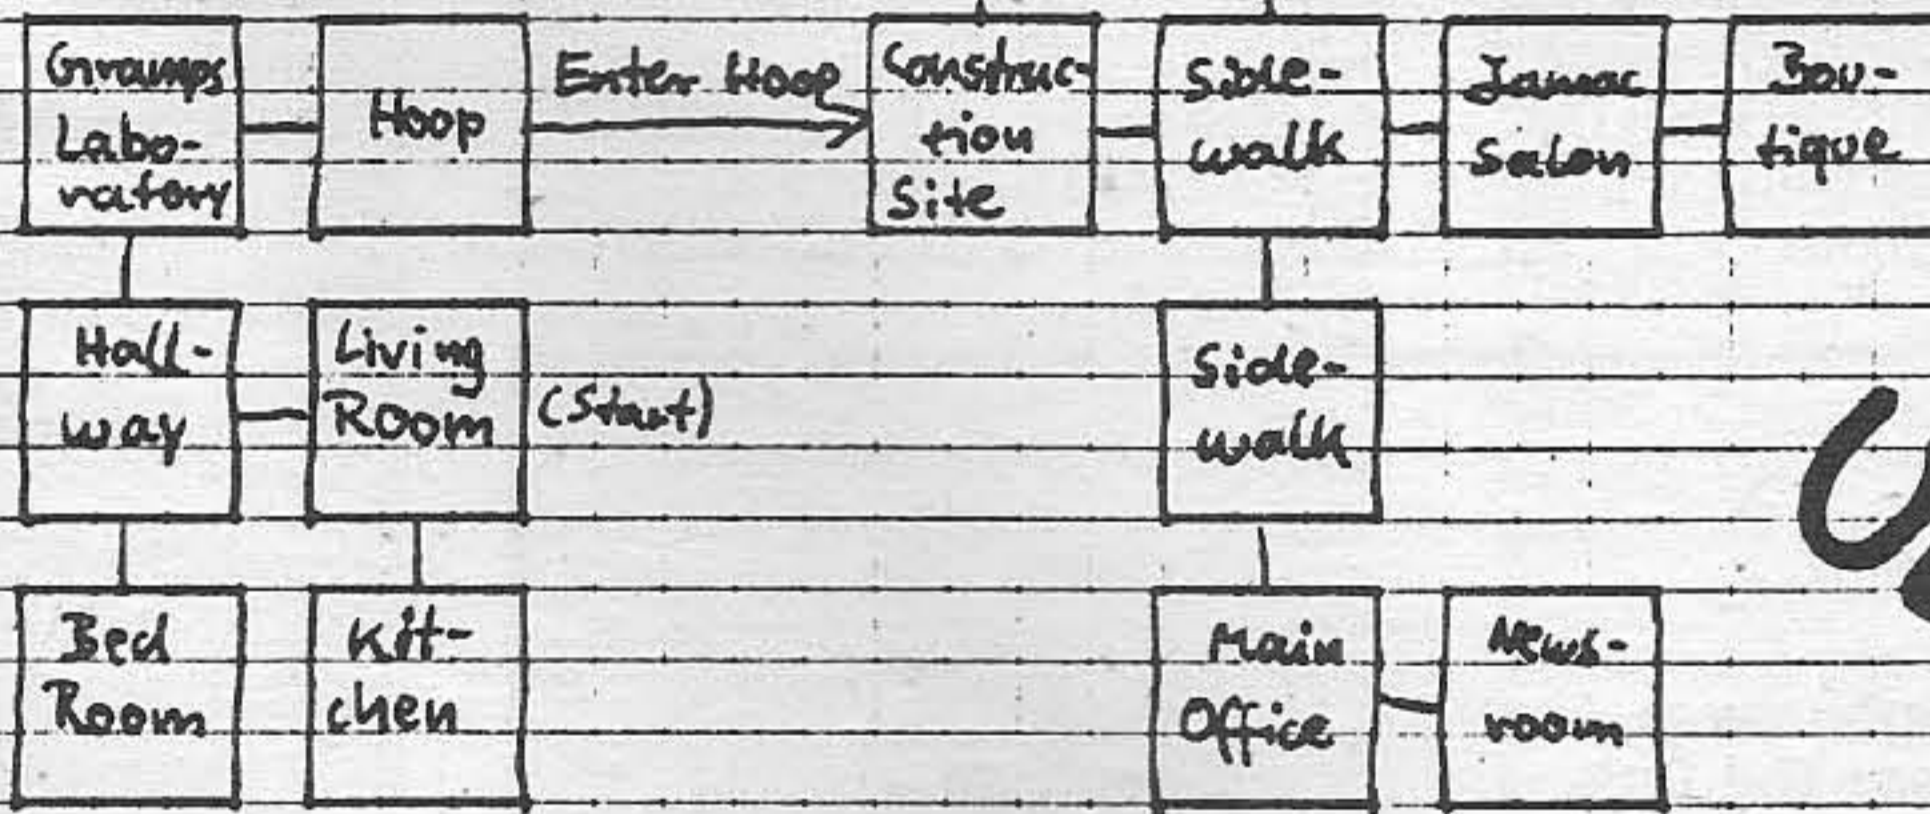 Gramps
Labo-
ratory
Hoop
Enter Hoop
Construc-
tion
Site
Side-
walk
Jamac
Salon
Bou-
tique
Hall-
way
Living
Room
(Start)
Side-
walk
Bed
Room
Kit-
chen
Main
Office
News-
room